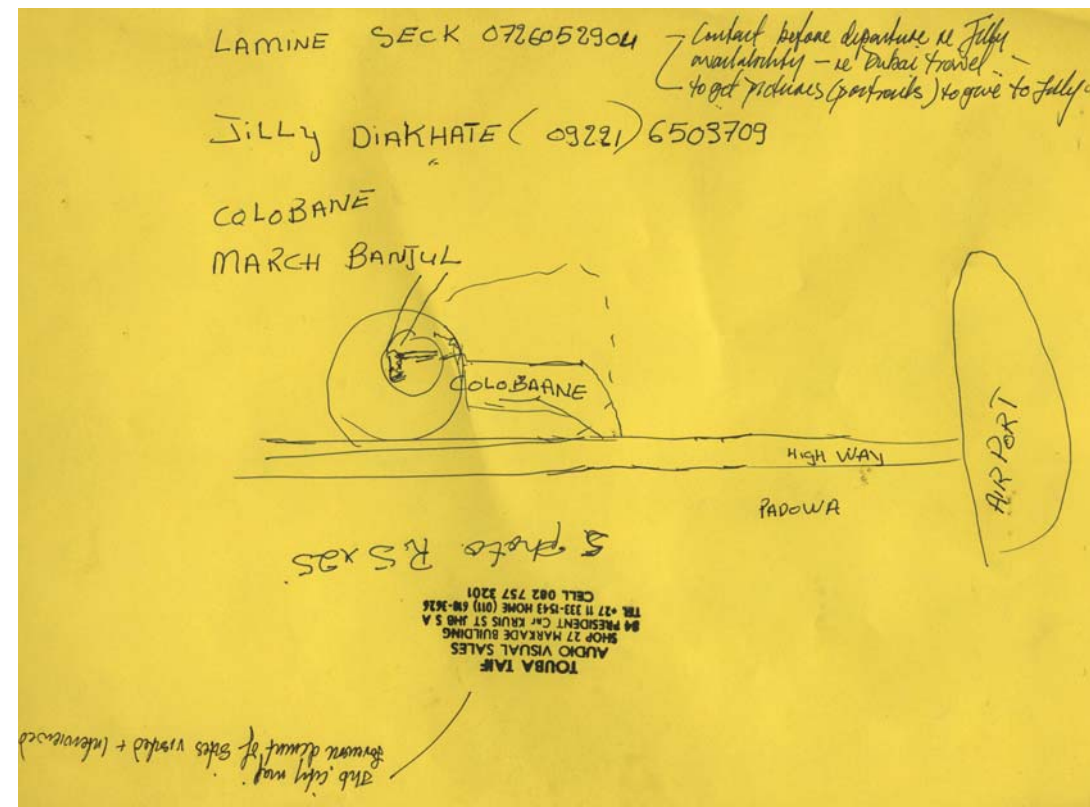 LAMINE SECK 0726052904
- Contact before departure re Jilly
availability - re Dubai travel -
- to get pictures (portraits) to give to Jilly
JILLY DIAKHATE (09221) 6503709
COLOBANE
MARCH BANJUL
COLOBAANE
HIGH WAY
AIRPORT
PADOWA
5 photo R.5 x25
TOUBA TAIF
AUDIO VISUAL SALES
SHOP 27 MARKADE BUILDING
84 PRESIDENT Cnr KRUIS ST JHB S A
TEL +27 11 333-1543 HOME (011) 618-3626
CELL 082 757 3201
Jhb city map
document of sites visited + interviewed